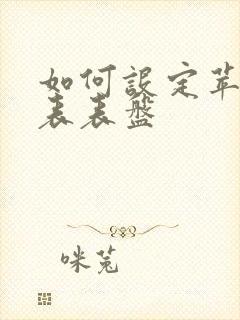 如何設定苹
表表盤
咪兔